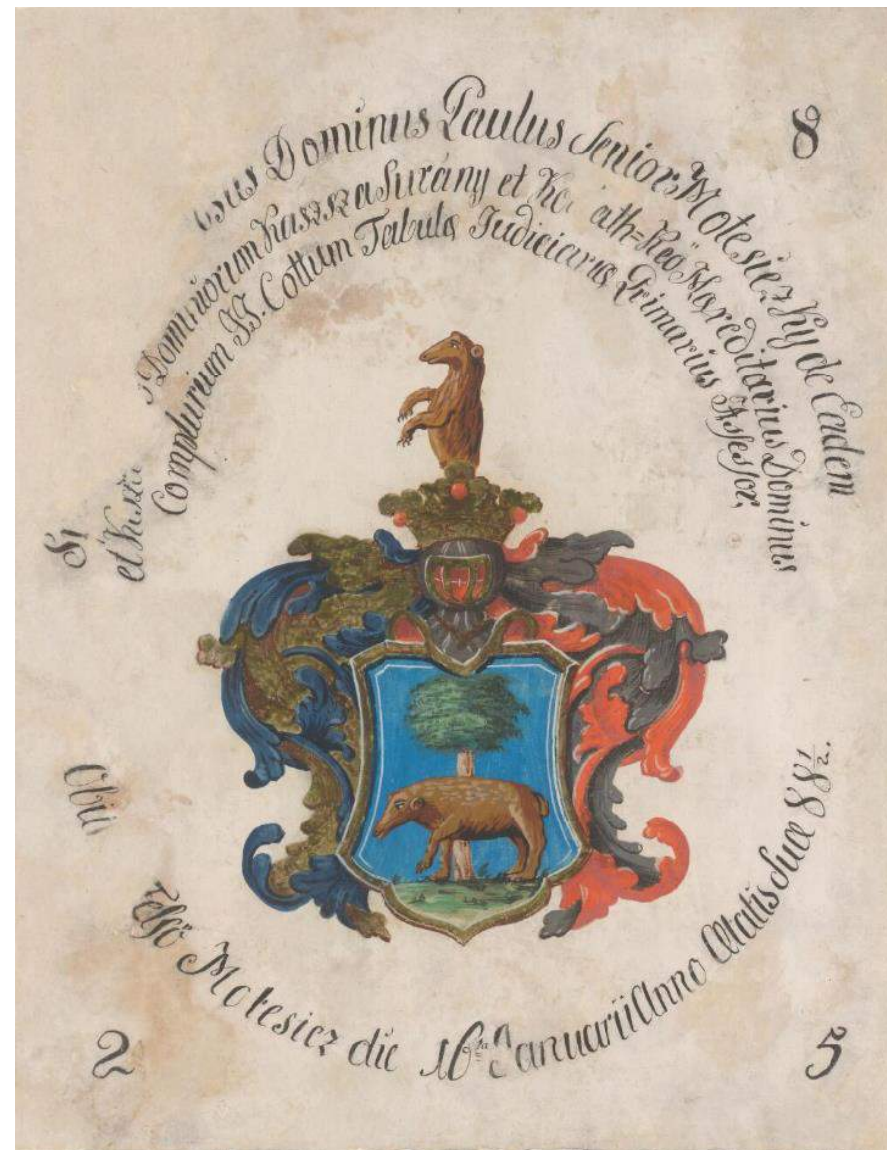 8
Dominus Paulus Senior Motesiczky de Eadem
Dominiorum Kaszza Surány et Hæreditarius Dominus
Complurium II. Cottum Tabulæ Judiciariæ Primarius Assessor,
et
Felső Motesicz die 16 Januarii Anno Ætatis Suæ 88 1/2.
2
5